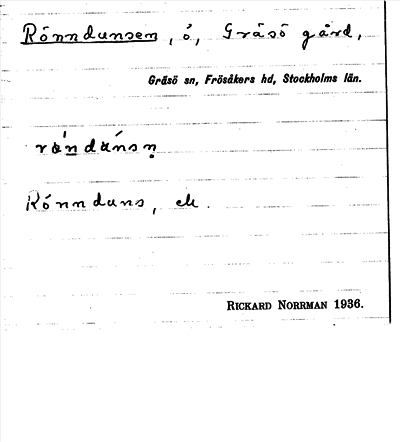 Rónndunsen, ö, Gräsö gård,
Gräsö sn, Frösåkers hd, Stockholms län.
Rónnduns, ek.
RICKARD NORRMAN 1936.